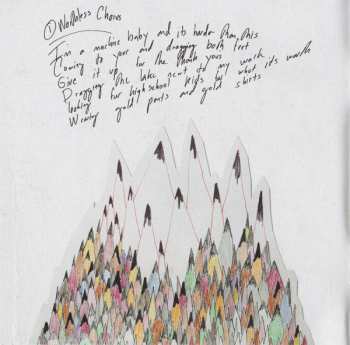 ① Wordless Chorus
I'm a machine baby and its harder than this
Coming to your end dragging both feet
Give it up for the mouth yours
Dragging the lake next to my work
looking for high school kids for what its worth
Wearing gold pants and gold shirts